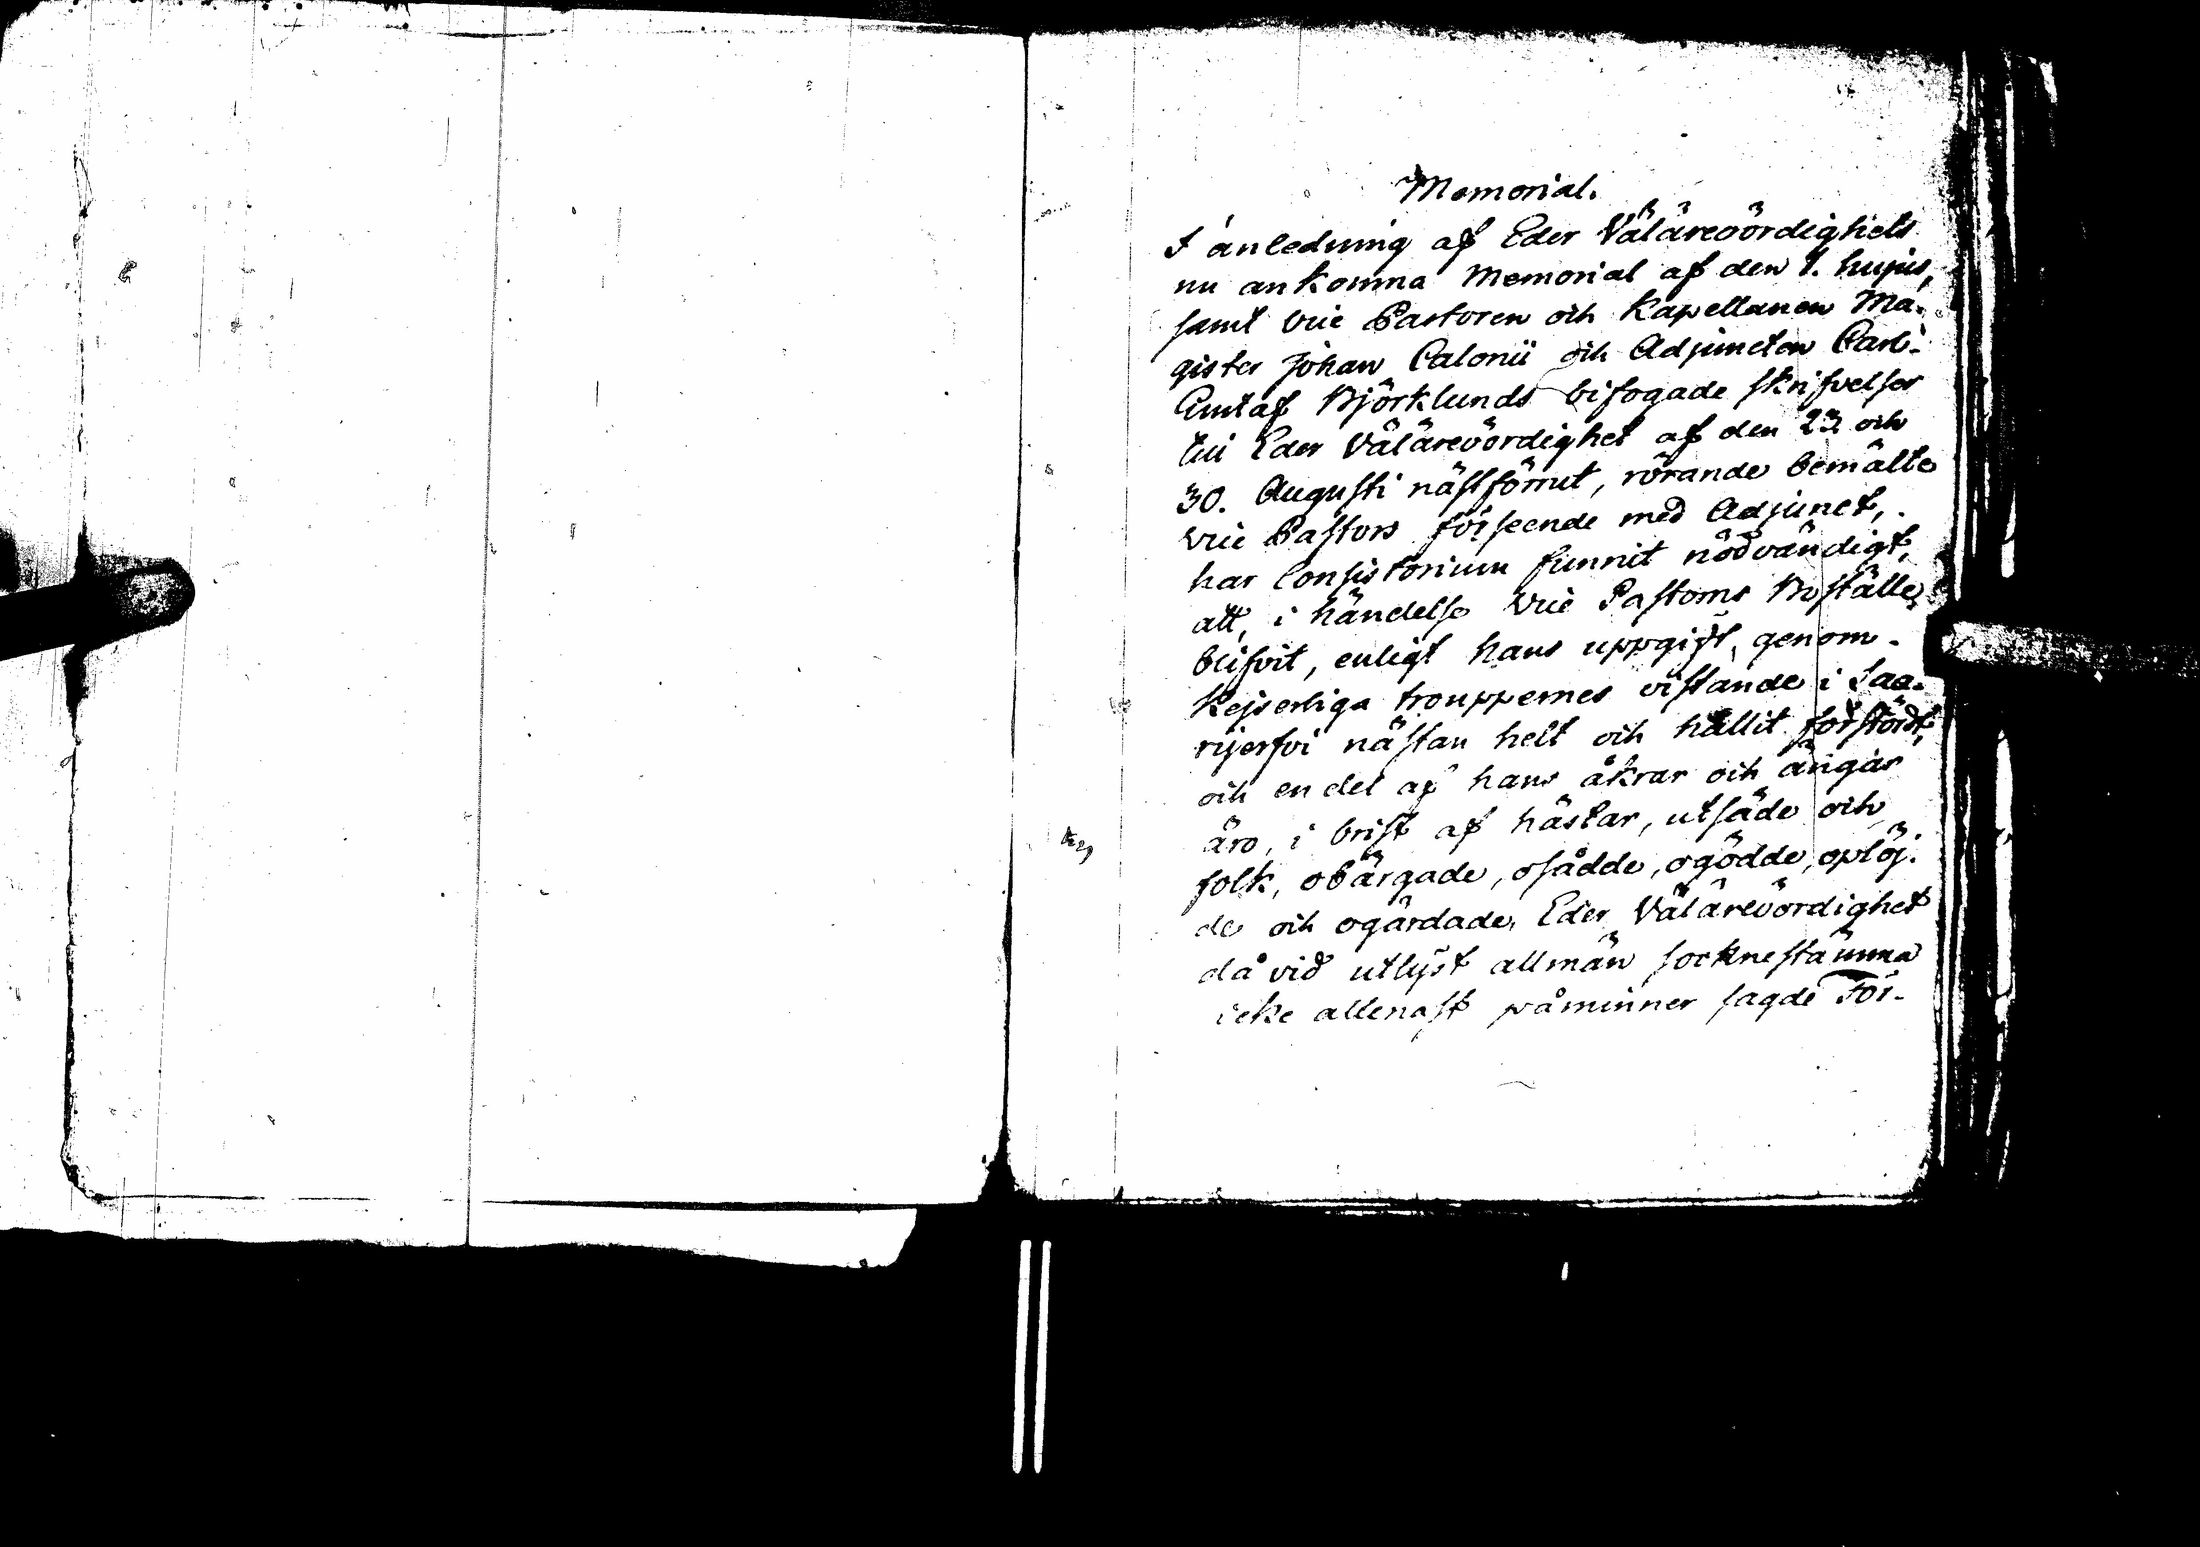 Memorial.
I anledning af Eder Välärevördighets
nu ankomna Memorial af den 1. hujus,
samt vice Pastoren och Kapellanen Ma-
gister Johan Calonii och Adjuncten Carl
Gustaf Björklunds bifogade skrifvelser
till Eder Välärevördighet af den 23 och
30. Augusti nästförrut, rörande bemälte
vice Pastors förseende med Adjunct,
har Consistorium funnit nödvändigt,
att, i händelse vice Pastorns Boställe
blifvit, enligt hans uppgift, genom
Kejserliga trouppernes vistande i Saa-
rijerfvi nästan helt och hållit förstördt,
och en del af hans åkrar och ängar
äro, i brist af hästar, utsäde och
folk, obärgade, osådde, ogödde, oplöj-
de och ogärdade, Eder Välärevördighet
då vid utlyst allmän socknestämma
icke allenast påminner sagde För-